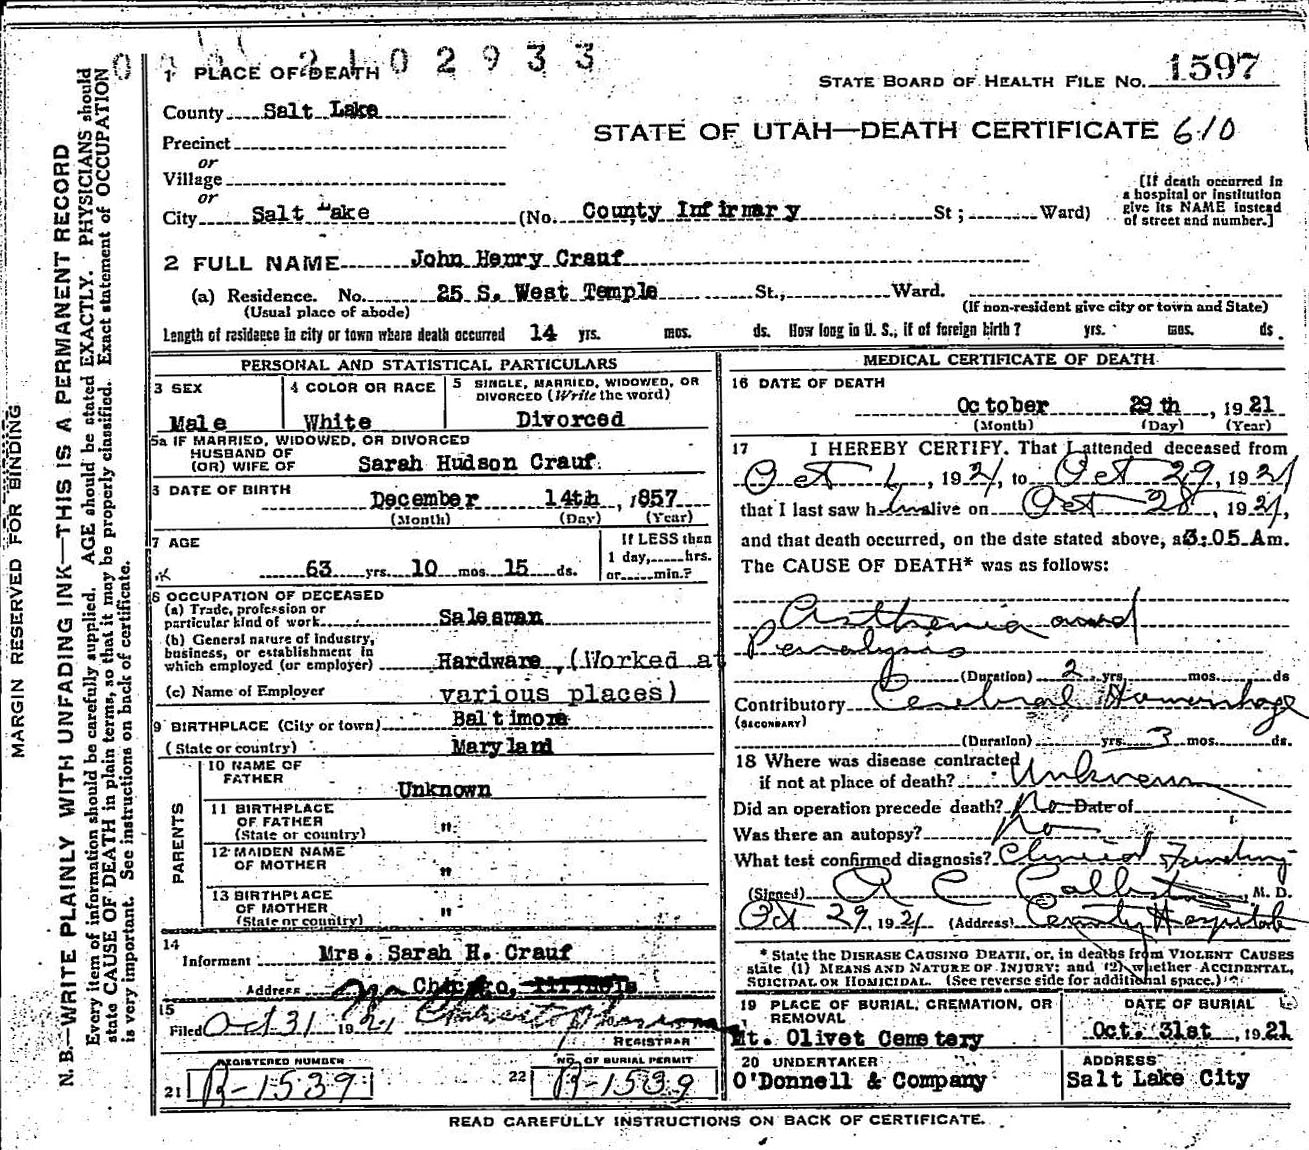 0 2 1 0 2 9 3 3
1 PLACE OF DEATH
STATE BOARD OF HEALTH FILE NO. 1597
County Salt Lake
STATE OF UTAH—DEATH CERTIFICATE 610
Precinct
or
Village
or
City Salt Lake (No. County Infirmary St; Ward)
[If death occurred in
a hospital or institution
give its NAME instead
of street and number.]
2 FULL NAME John Henry Crauf
(a) Residence. No. 25 S. West Temple St., Ward.
(Usual place of abode) (If non-resident give city or town and State)
Length of residence in city or town where death occurred 14 yrs. mos. ds. How long in U. S., if of foreign birth? yrs. mos. ds.
PERSONAL AND STATISTICAL PARTICULARS
3 SEX
Male
4 COLOR OR RACE
White
5 SINGLE, MARRIED, WIDOWED, OR
DIVORCED (Write the word)
Divorced
5a IF MARRIED, WIDOWED, OR DIVORCED
HUSBAND OF
(OR) WIFE OF Sarah Hudson Crauf
DATE OF BIRTH
December 14th, 1857
(Month) (Day) (Year)
7 AGE
63 yrs. 10 mos. 15 ds.
If LESS than
1 day, hrs.
or min.?
OCCUPATION OF DECEASED
(a) Trade, profession or
particular kind of work Salesman
(b) General nature of industry,
business, or establishment in
which employed (or employer) Hardware, (Worked at
(c) Name of Employer various places)
9 BIRTHPLACE (City or town) Baltimore
(State or country) Maryland
PARENTS
10 NAME OF
FATHER Unknown
11 BIRTHPLACE
OF FATHER
(State or country) "
12 MAIDEN NAME
OF MOTHER "
13 BIRTHPLACE
OF MOTHER
(State or country) "
14
Informent Mrs. Sarah H. Crauf
Address Chicago, Illinois
15
Filed Oct 31 1921
REGISTRAR
REGISTERED NUMBER
21 R-1539
NO. OF BURIAL PERMIT
22 R-1539
MEDICAL CERTIFICATE OF DEATH
16 DATE OF DEATH
October 29th, 1921
(Month) (Day) (Year)
17 I HEREBY CERTIFY, That I attended deceased from
Oct 1, 1921, to Oct 29, 1921
that I last saw him alive on Oct 28, 1921,
and that death occurred, on the date stated above, at 3:05 Am.
The CAUSE OF DEATH* was as follows:
Asthenia and
Paralysis
(Duration) 2 yrs. mos. ds
Contributory Cerebral Hemorrhage
(SECONDARY)
(Duration) yrs. 3 mos. ds.
18 Where was disease contracted
if not at place of death? Unknown
Did an operation precede death? No Date of
Was there an autopsy? No
What test confirmed diagnosis? Clinical Finding
(Signed) R C , M. D.
Oct 29, 1921 (Address) County Hospital
* State the DISEASE CAUSING DEATH, or, in deaths from VIOLENT CAUSES
state (1) MEANS AND NATURE OF INJURY; and (2) whether ACCIDENTAL,
SUICIDAL OR HOMICIDAL. (See reverse side for additional space.)
19 PLACE OF BURIAL, CREMATION, OR
REMOVAL
Mt. Olivet Cemetery
DATE OF BURIAL
Oct. 31st, 1921
20 UNDERTAKER
O'Donnell & Company
ADDRESS
Salt Lake City
READ CAREFULLY INSTRUCTIONS ON BACK OF CERTIFICATE.
MARGIN RESERVED FOR BINDING
N. B.—WRITE PLAINLY WITH UNFADING INK—THIS IS A PERMANENT RECORD
Every item of information should be carefully supplied. AGE should be stated EXACTLY. PHYSICIANS should
state CAUSE OF DEATH in plain terms, so that it may be properly classified. Exact statement of OCCUPATION
is very important. See instructions on back of certificate.